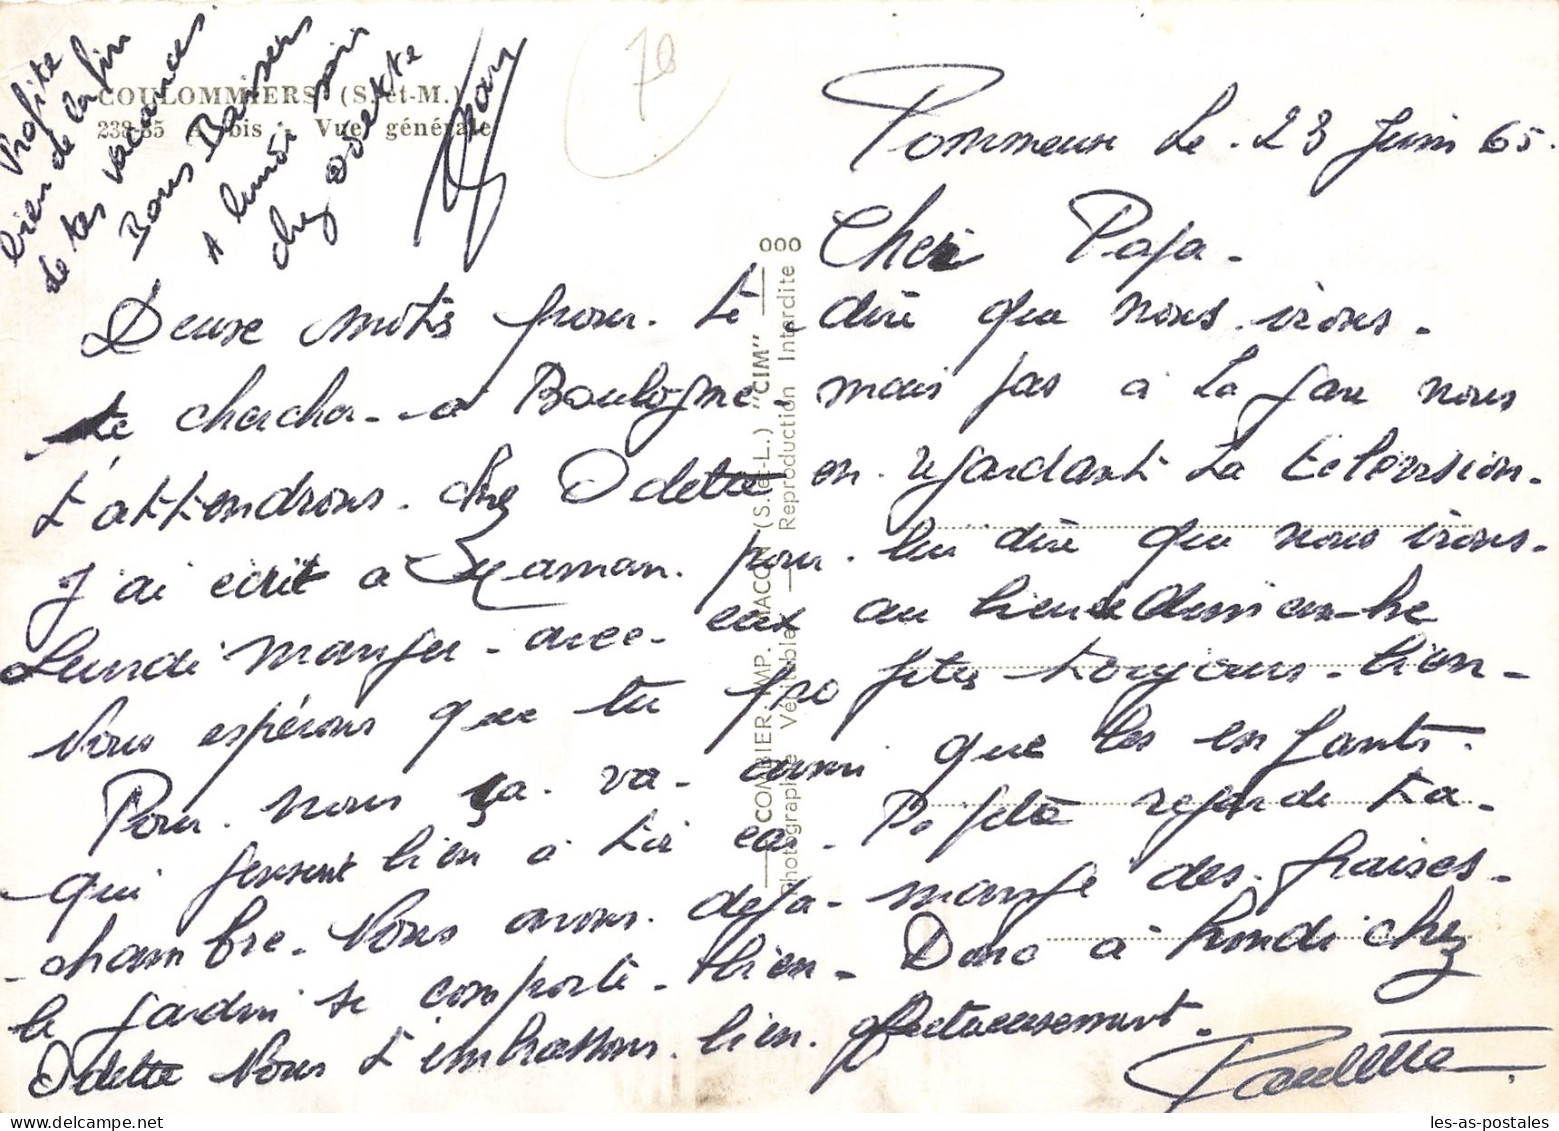 COULOMMIERS (S.-et-M.)
238-85 A bis - Vue générale
Profite
bien de la fin
de tes vacances
Bons Baisers
A lundi soir
chez Odette
Jean
70
Pommeuse Le. 23 Juin 65.
Cher Papa.
Deuse mots pour. te. dire que nous. irons.
te chercher. a Boulogne. mais pas a La gare nous
t'attendrons. chez Odette en. regardant La television.
J'ai ecrit a Maman. pour. lui dire que nous irons.
Lundi manger. avec. eux au lieu de dimanche
Nous espérons que tu toujours. bien.
Pour. nous ça. va. aussi que les enfants.
qui pensent bien a toi. Papa. regarde ta.
chambre. Nous avons. deja. mangé des. fraises.
le jardin se comporte. bien. Donc à Lundi chez
Odette Nous t'embrassons. bien. affectueusement.
Paulette.
000
COMBIER IMP. MACON (S.-et-L.) "CIM"
Photographie Véritable — Reproduction Interdite
les-as-postales